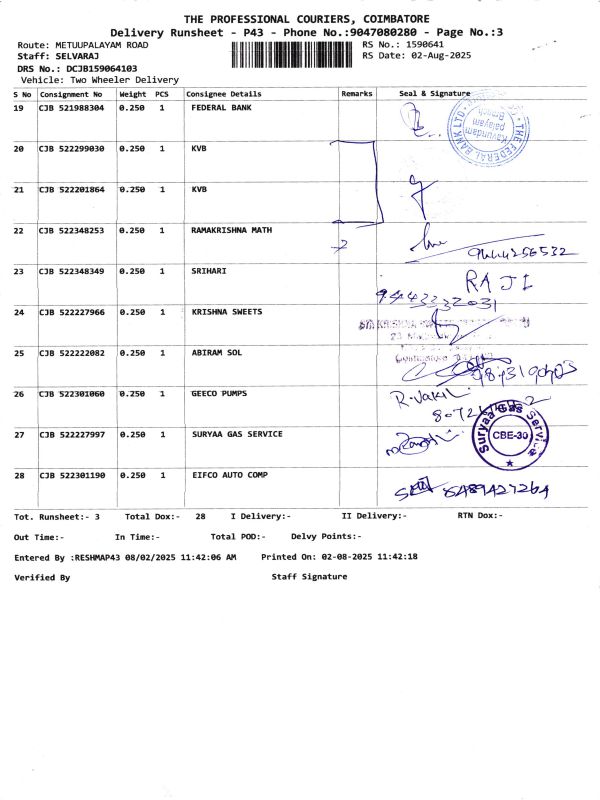 THE PROFESSIONAL COURIERS, COIMBATORE
Delivery Runsheet - P43 - Phone No.:9047080280 - Page No.:3
Route: METUUPALAYAM ROAD RS No.: 1590641
Staff: SELVARAJ RS Date: 02-Aug-2025
DRS No.: DCJB159064103
Vehicle: Two Wheeler Delivery
S No Consignment No Weight PCS Consignee Details Remarks Seal & Signature
19 CJB 521988304 0.250 1 FEDERAL BANK
THE FEDERAL BANK LTD.
Kavundam
palayam
Branch
20 CJB 522299030 0.250 1 KVB
21 CJB 522201864 0.250 1 KVB
22 CJB 522348253 0.250 1 RAMAKRISHNA MATH
9444256532
23 CJB 522348349 0.250 1 SRIHARI RAJI
9443332031
24 CJB 522227966 0.250 1 KRISHNA SWEETS
25 CJB 522222082 0.250 1 ABIRAM SOL
26 CJB 522301060 0.250 1 GEECO PUMPS R-Vakil
27 CJB 522227997 0.250 1 SURYAA GAS SERVICE
Suryaa Gas Service
CBE-30
28 CJB 522301190 0.250 1 EIFCO AUTO COMP
Tot. Runsheet:- 3 Total Dox:- 28 I Delivery:- II Delivery:- RTN Dox:-
Out Time:- In Time:- Total POD:- Delvy Points:-
Entered By :RESHMAP43 08/02/2025 11:42:06 AM Printed On: 02-08-2025 11:42:18
Verified By Staff Signature